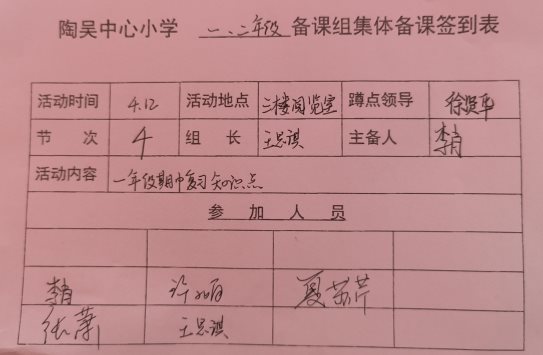 陶吴中心小学 一、二年级 备课组集体备课签到表
活动时间 4.12 活动地点 三楼阅览室 蹲点领导 徐贤华
节次 4 组长 王思淇 主备人 李自
活动内容 一年级期中复习知识点
参加人员
许娟 夏芳芹
张萧 王思淇